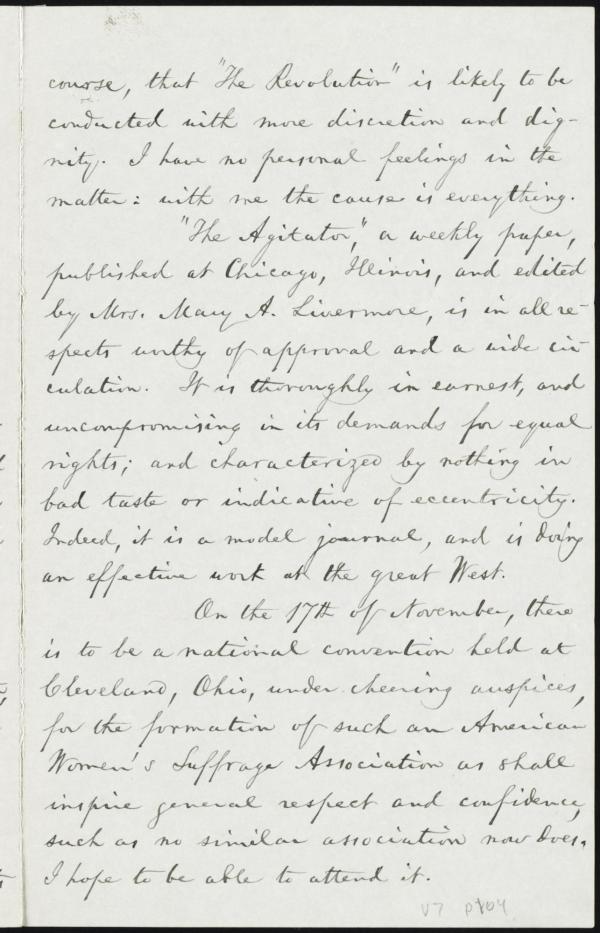 course, that "The Revolution" is likely to be
conducted with more discretion and dig-
nity. I have no personal feelings in the
matter: with me the cause is everything.
"The Agitator," a weekly paper,
published at Chicago, Illinois, and edited
by Mrs. Mary A. Livermore, is in all re-
spects worthy of approval and a wide cir-
culation. It is thoroughly in earnest, and
uncompromising in its demands for equal
rights; and characterized by nothing in
bad taste or indicative of eccentricity.
Indeed, it is a model journal, and is doing
an effective work at the great West.
On the 17th of November, there
is to be a national convention held at
Cleveland, Ohio, under cheering auspices,
for the formation of such an American
Women's Suffrage Association as shall
inspire general respect and confidence,
such as no similar association now does.
I hope to be able to attend it.
V7 p104